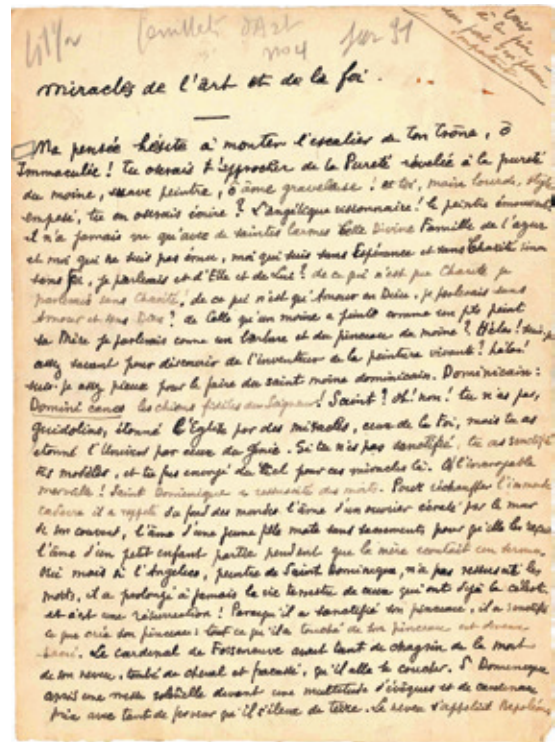 Feuillets d'Art
no 4
miracles de l'art et de la foi.
Ma pensée hésite à monter l'escalier de ton trône, ô
Immaculée ! tu oserais t'approcher de la Pureté révélée à la pureté
du moine, suave peintre, ô âme graveleuse ! et toi, main lourde, style
empesé, tu oserais écrire ? L'angélique visionnaire ! le peintre
il n'a jamais vu qu'avec de saintes larmes cette Divine Famille de l'azur
et moi qui ne suis pas ému, moi qui suis sans Espérance et sans Charité sinon
sans Foi, je parlerais et d'Elle et de Lui ? de ce qui n'est que Charité je
parlerais sans Charité, de ce qui n'est qu'Amour en Dieu, je parlerais sans
Amour et sans Dieu ? de Celle qu'un moine a peinte comme un peint
sa Mère je parlerais comme un barbare et du pinceau du moine ? Hélas ! suis-je
assez savant pour discourir de l'inventeur de la peinture vivante ? hélas !
suis-je assez pieux pour le faire du saint moine dominicain. Dominicain :
Domini canes les chiens fidèles du Seigneur ! Saint ? oh ! non ! tu n'as pas,
Guidolino, étonné l'Eglise par des miracles, ceux de la Foi, mais tu as
étonné l'Univers par ceux du génie. Si tu n'es pas sanctifié, tu as sanctifié
tes modèles, et tu fus envoyé du Ciel pour ces miracles là. O l'incroyable
merveille ! Saint Dominique a ressuscité des morts. Pour réchauffer l'immonde
cadavre il a rappelé du fond des mondes l'âme d'un ouvrier écrasé par le mur
de son couvent, l'âme d'une jeune fille morte sans sacrements pour qu'elle les reçoive
l'âme d'un petit enfant partie pendant que la mère écoutait un sermon.
Oui mais si l'Angelico, peintre de Saint Dominique, n'a pas ressuscité les
morts, il a prolongé à jamais la vie terrestre de ceux qui ont déjà la céleste
et c'est une résurrection ! Parce qu'il a sanctifié son pinceau, il a sanctifié
ce que créa son pinceau : tout ce qu'il a touché de son pinceau est devenu
sacré. Le cardinal de Fosseneuve avait tant de chagrin de la mort
de son neveu, tombé de cheval et fracassé, qu'il alla se coucher. S Dominique
après une messe solennelle devant une multitude d'évêques et de cardinaux
prie avec tant de ferveur qu'il s'élève de terre. Le neveu s'appelait Napoléon